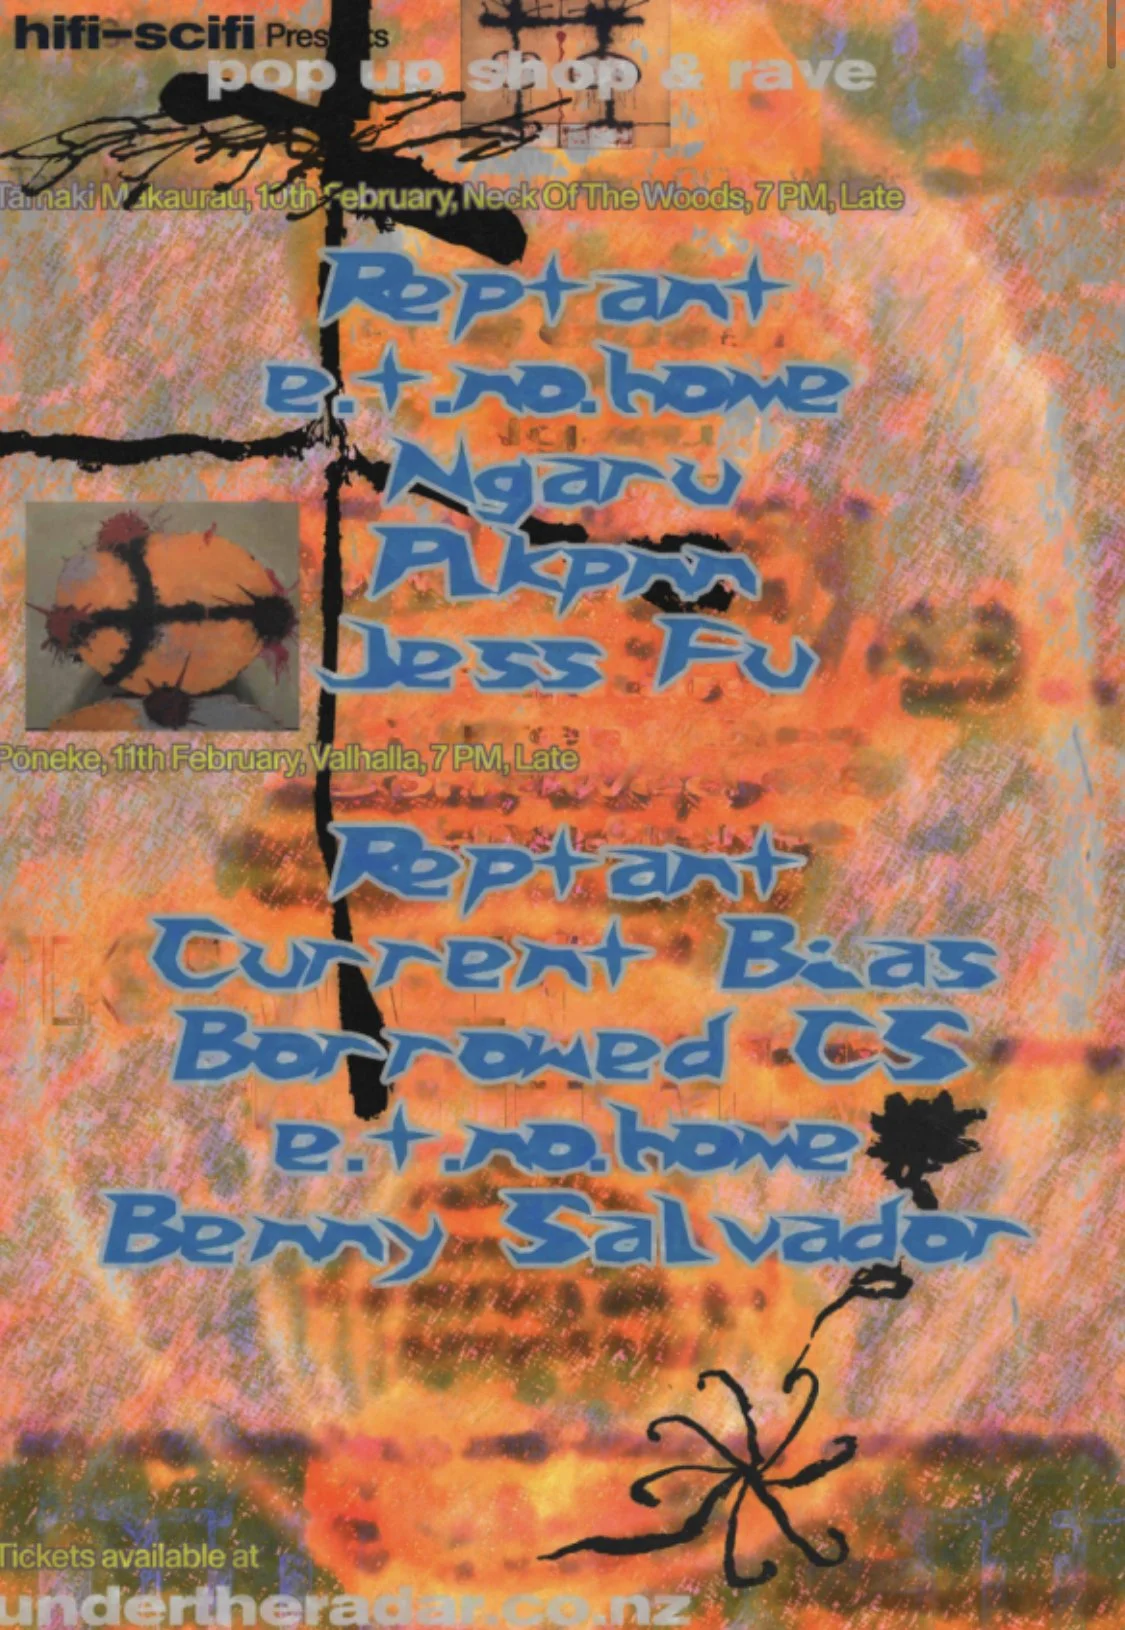 hifi-scifi Presents
pop up shop & rave
Tāmaki Makaurau, 10th February, Neck Of The Woods, 7 PM, Late
Reptant
e.t.no.home
Ngaru
Plkpnn
Jess Fu
Pōneke, 11th February, Valhalla, 7 PM, Late
Reptant
Current Bias
Borrowed CS
e.t.no.home
Benny Salvador
Tickets available at
undertheradar.co.nz